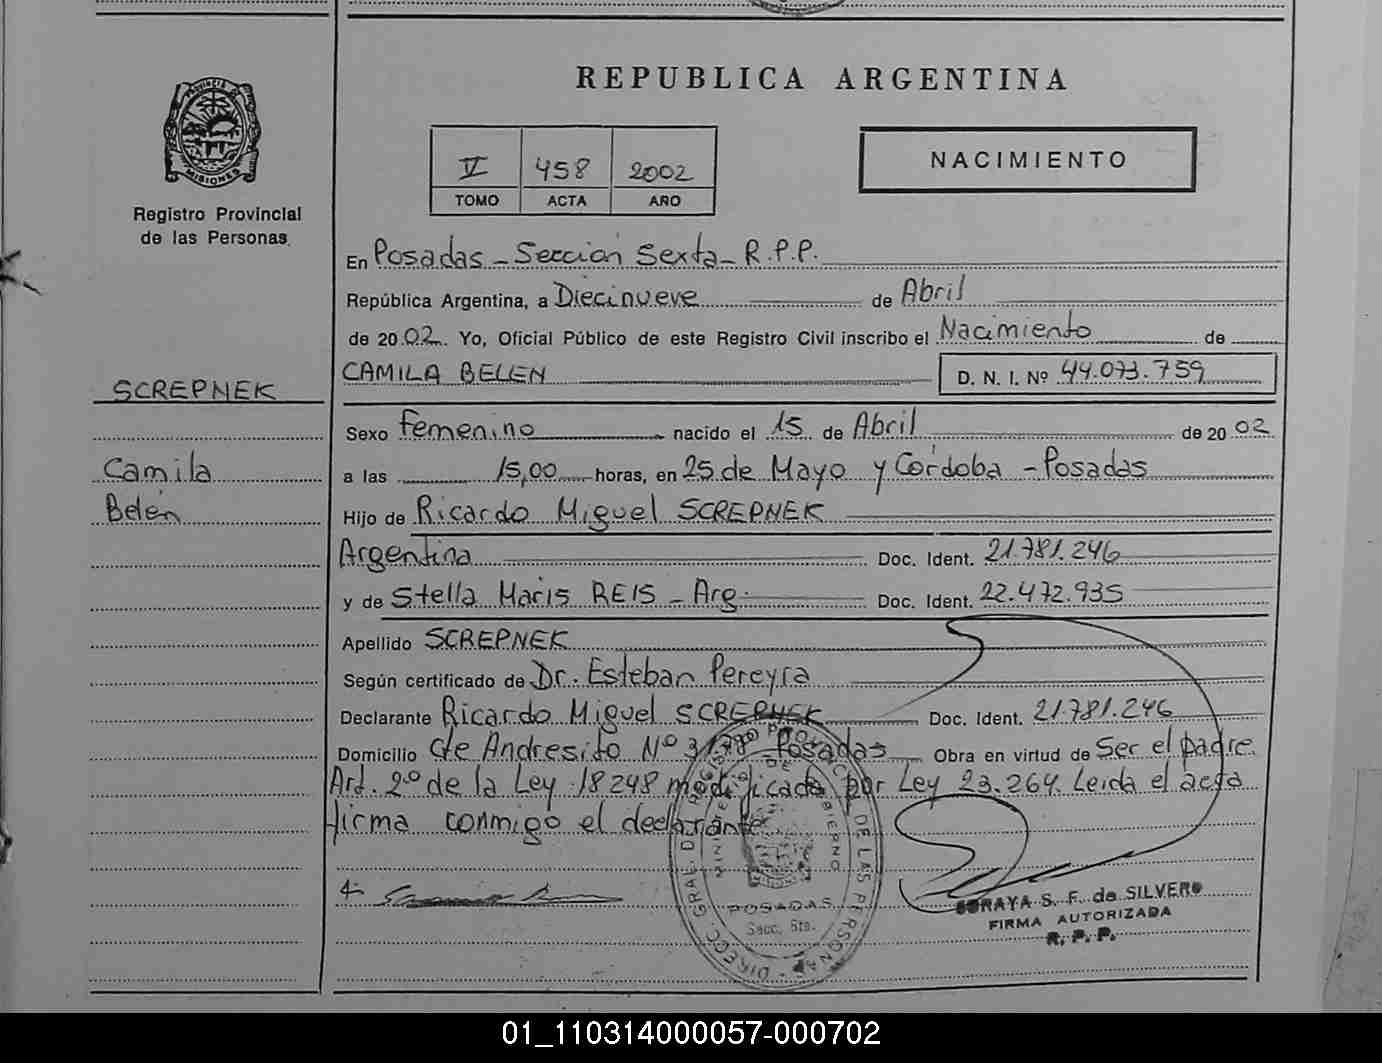 REPUBLICA ARGENTINA
PROVINCIA DE
MISIONES
Registro Provincial
de las Personas
V 458 2002
TOMO ACTA AÑO
NACIMIENTO
En Posadas - Sección Sexta - R.P.P.
República Argentina, a Diecinueve de Abril
de 2002. Yo, Oficial Público de este Registro Civil inscribo el Nacimiento de
CAMILA BELEN D. N. I. Nº 44.073.759
SCREPNEK
Camila
Belén
Sexo Femenino nacido el 15 de Abril de 2002
a las 15,00 horas, en 25 de Mayo y Córdoba - Posadas
Hijo de Ricardo Miguel SCREPNEK
Argentina Doc. Ident. 21.781.246
y de Stella Maris REIS - Arg. Doc. Ident. 22.472.935
Apellido SCREPNEK
Según certificado de Dr. Esteban Pereyra
Declarante Ricardo Miguel SCREPNEK Doc. Ident. 21.781.246
Domicilio Cte Andresito Nº Posadas Obra en virtud de Ser el padre.
Art. 2º de la Ley 18248 modificada por Ley 23.264. Leida el acta
firma conmigo el declarante
POSADAS
Secc. 6ta.
SORAYA S. F. de SILVERO
FIRMA AUTORIZADA
R. P. P.
01_110314000057-000702